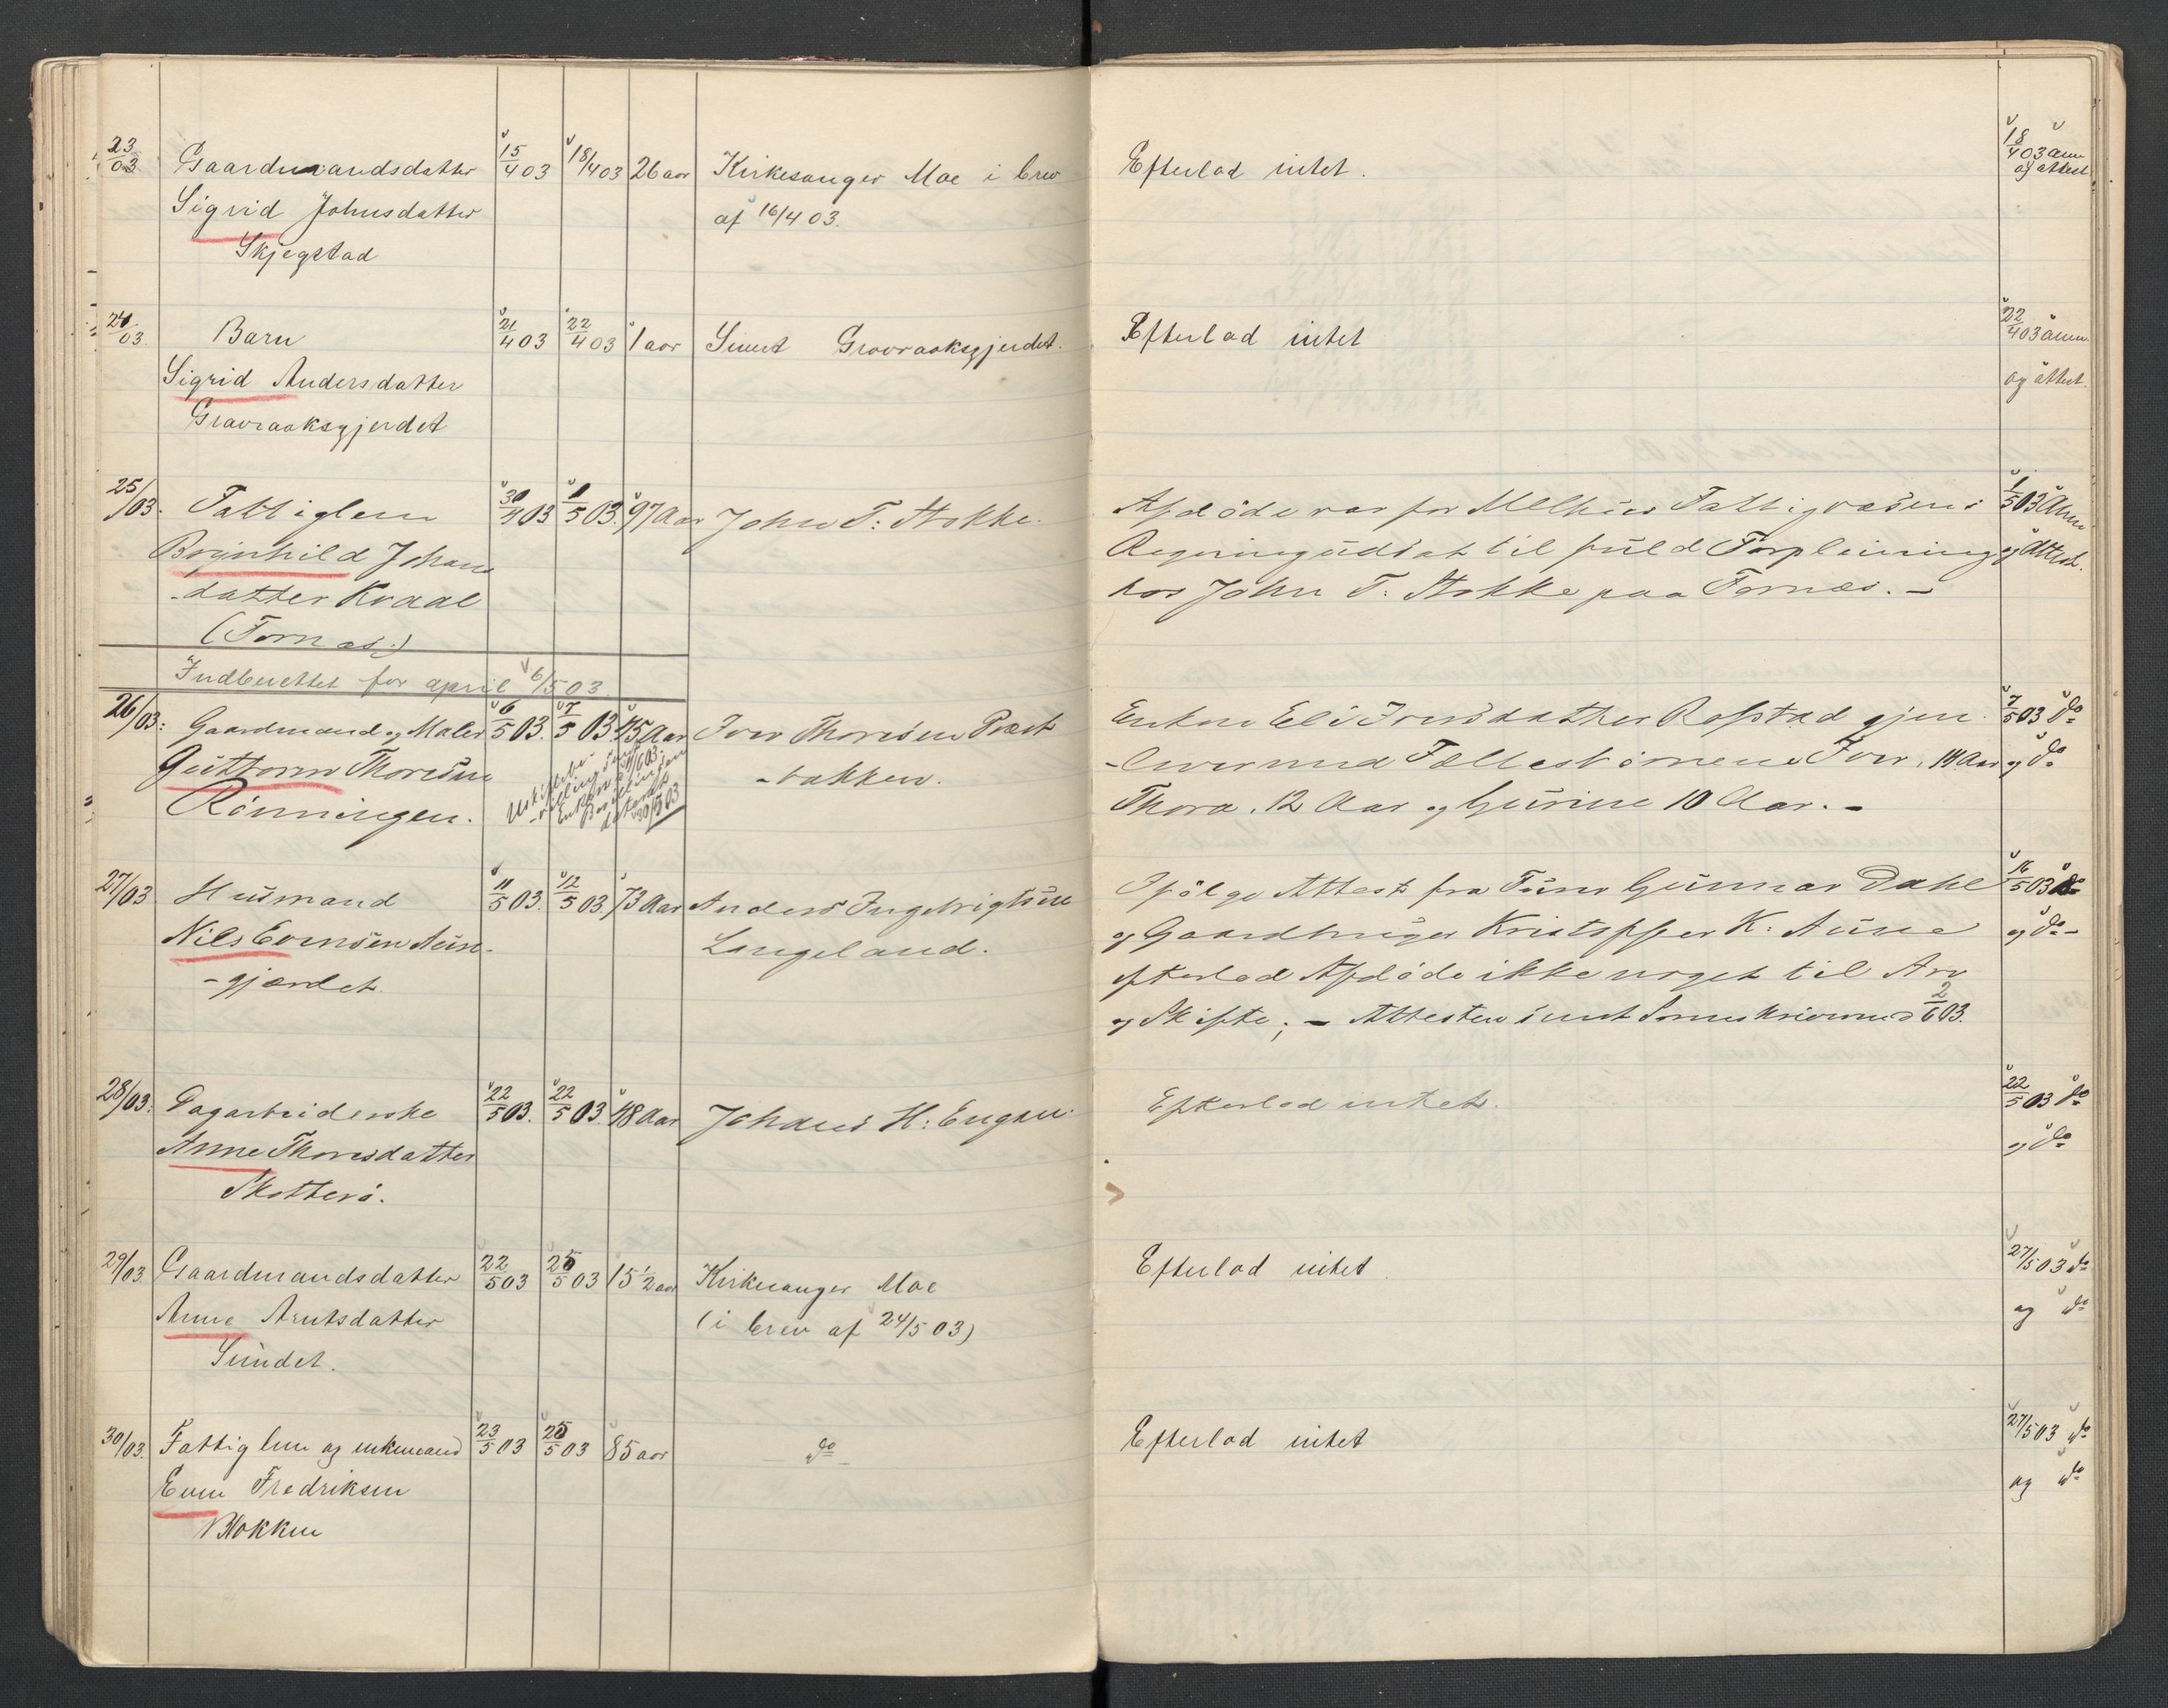 23/03 Gaardmandsdatter 15/4 03 18/4 03 26 aar Kirkesanger Moe i brev Efterlod intet. 18/4 03 Anm
Sigrid Johnsdatter af 16/4 03. og attest
Skjegstad
24/03 Barn 21/4 03 22/4 03 1 aar Smest Gravraaksgjerdet. Efterlod intet 22/4 03 anm.
Sigrid Andersdatter og attest.
Gravraaksgjerdet
25/03. Fattiglem 30/4 03 1/5 03. 97 Aar John T: Stokke. Afdöde var for Melhus Fattigvæsens 1/5 03 Anm
Brynhild Johans Regning udsat til fuld Forpleining og Attest.
-datter Kvaal hos John T. Stokke paa Fornæs. –
(Fornæs:)
Indberettet for april 6/5 03.
26/03: Gaardmand og Maler 6/5 03. 7/5 03 45 Aar Iver Thoresen Præst Enken Eli Jonsdatter Rofstad gjen- 7/5 03 do
Guttorm Thoresen -bakken. -lever med Fællesbörnene Iver, 14 Aar og do
Rönningen. Thora, 12 Aar og Gurine 10 Aar. –
27/03 Husmand 11/5 03. 12/5 03. 73 Aar Anders Ingebrigtsen Ifölge Attest fra Tömr Gunnar Dahl 16/5 03 do
Nils Evensen Aune- Langeland. og Gaardbruger Kristoffer K: Aune og do –
-gjærdet. efterlod Afdöde ikke noget til Arv
og Skifte; – Attesten sendt Sorenskriveren 2/6 03.
28/03: Dagarbeiderske 22/5 03. 22/5 03. 48 Aar Johans H: Engen. Efterlod intet. 22/5 03 do
Anne Thoresdatter og do
Skotterö.
29/03. Gaardmandsdatter 22/5 03 25/5 03 15 1/2 aar Kirkesanger Moe Efterlod intet. 27/5 03 do
Anne Arntsdatter (i brev af 24/5 03) og do
Sundet.
30/03. Fattiglem og enkemand 23/5 03 25/5 03 85 aar – do – Efterlod intet 27/5 03 do
Even Fredriksen og do
Blokken